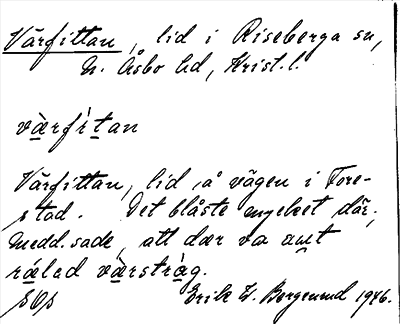 Värfittan, lid i Riseberga sn,
N. Åsbo hd, Krist. l.
vàrfítan
Värfittan, lid å vägen i Fore-
stad. Det blåste mycket där,
medd. sade, att dær va
rálad várstrág.
Erik W. Bergenud 1946.